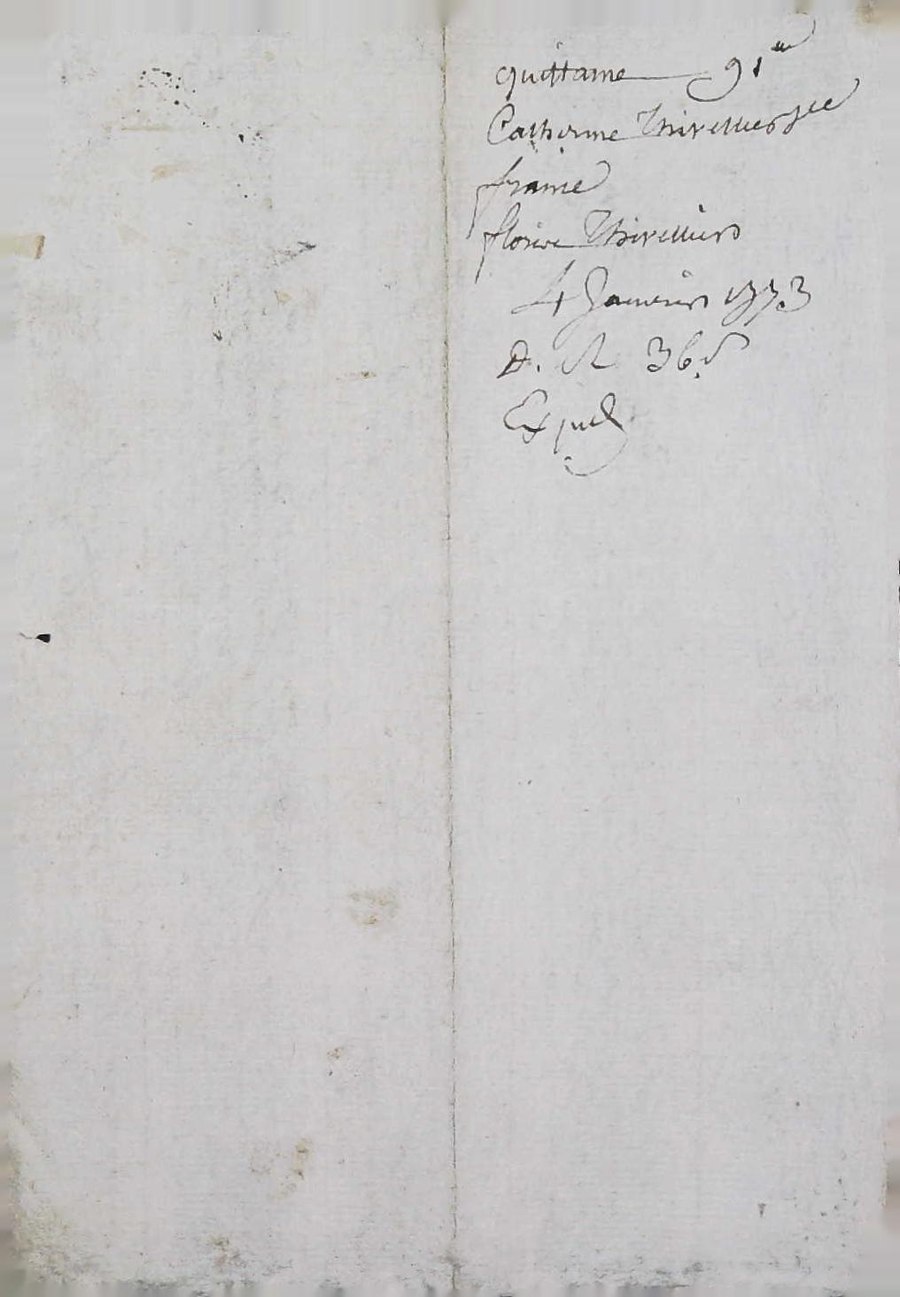 quittance 91#
Catherine Thivellier
france
florie Thivellier
4 Janvier 1773
D. R 36 s
Exped